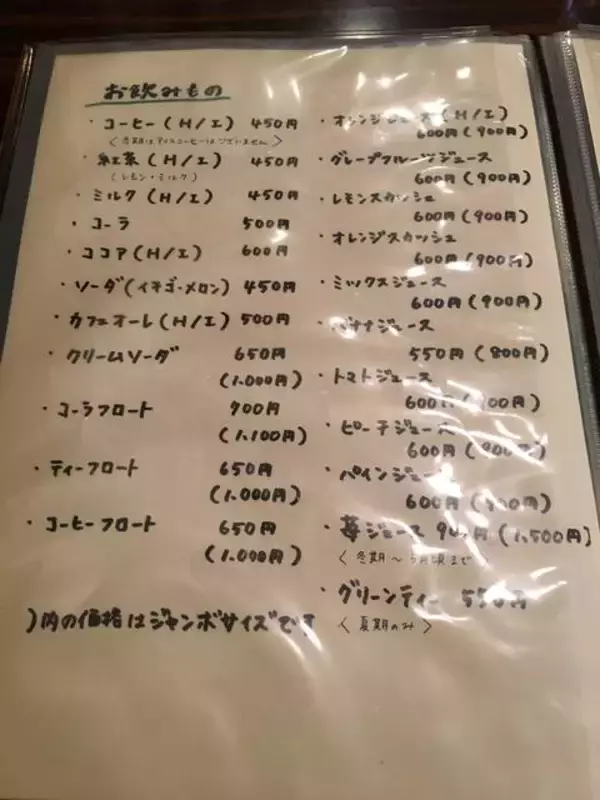 お飲みもの
・コーヒー(H/I) 450円
〈冬期はアイスコーヒーはございません〉
・紅茶(H/I) 450円
(レモン・ミルク)
・ミルク(H/I) 450円
・コーラ 500円
・ココア(H/I) 600円
・ソーダ(イチゴ・メロン) 450円
・カフェオーレ(H/I) 500円
・クリームソーダ 650円
(1.000円)
・コーラフロート 700円
(1.100円)
・ティーフロート 650円
(1.000円)
・コーヒーフロート 650円
(1.000円)
)内の価格はジャンボサイズです
・オレンジジュース(H/I)
600円(900円)
・グレープフルーツジュース
600円(900円)
・レモンスカッシュ
600円(900円)
・オレンジスカッシュ
600円(900円)
・ミックスジュース
600円(900円)
・バナナジュース
550円(800円)
・トマトジュース
600円(900円)
・ピーチジュース
600円(900円)
・パインジュース
600円(900円)
・苺ジュース (1,500円)
〈冬期〜5月頃まで〉
・グリーンティー 550円
〈夏期のみ〉